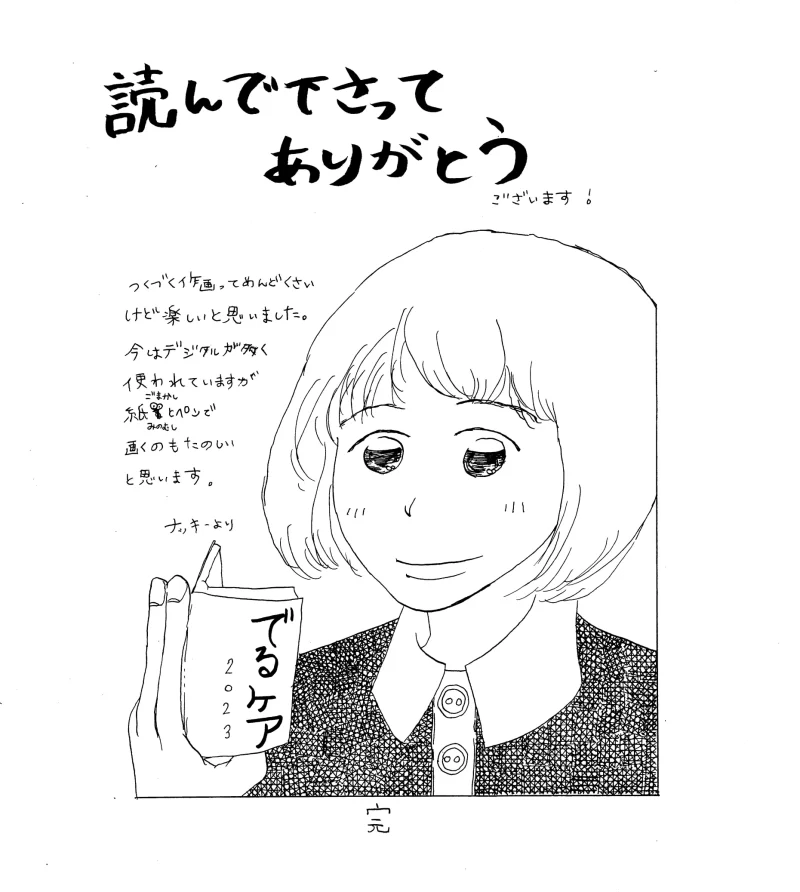 読んで下さって
ありがとう
ございます!
つくづく作画ってめんどくさい
けど楽しいと思いました。
今はデジタルが多く
使われていますが
ごまかし
紙とペンで
みのむし
画くのもたのしい
と思います。
ナッキーより
でるケア
2023
完